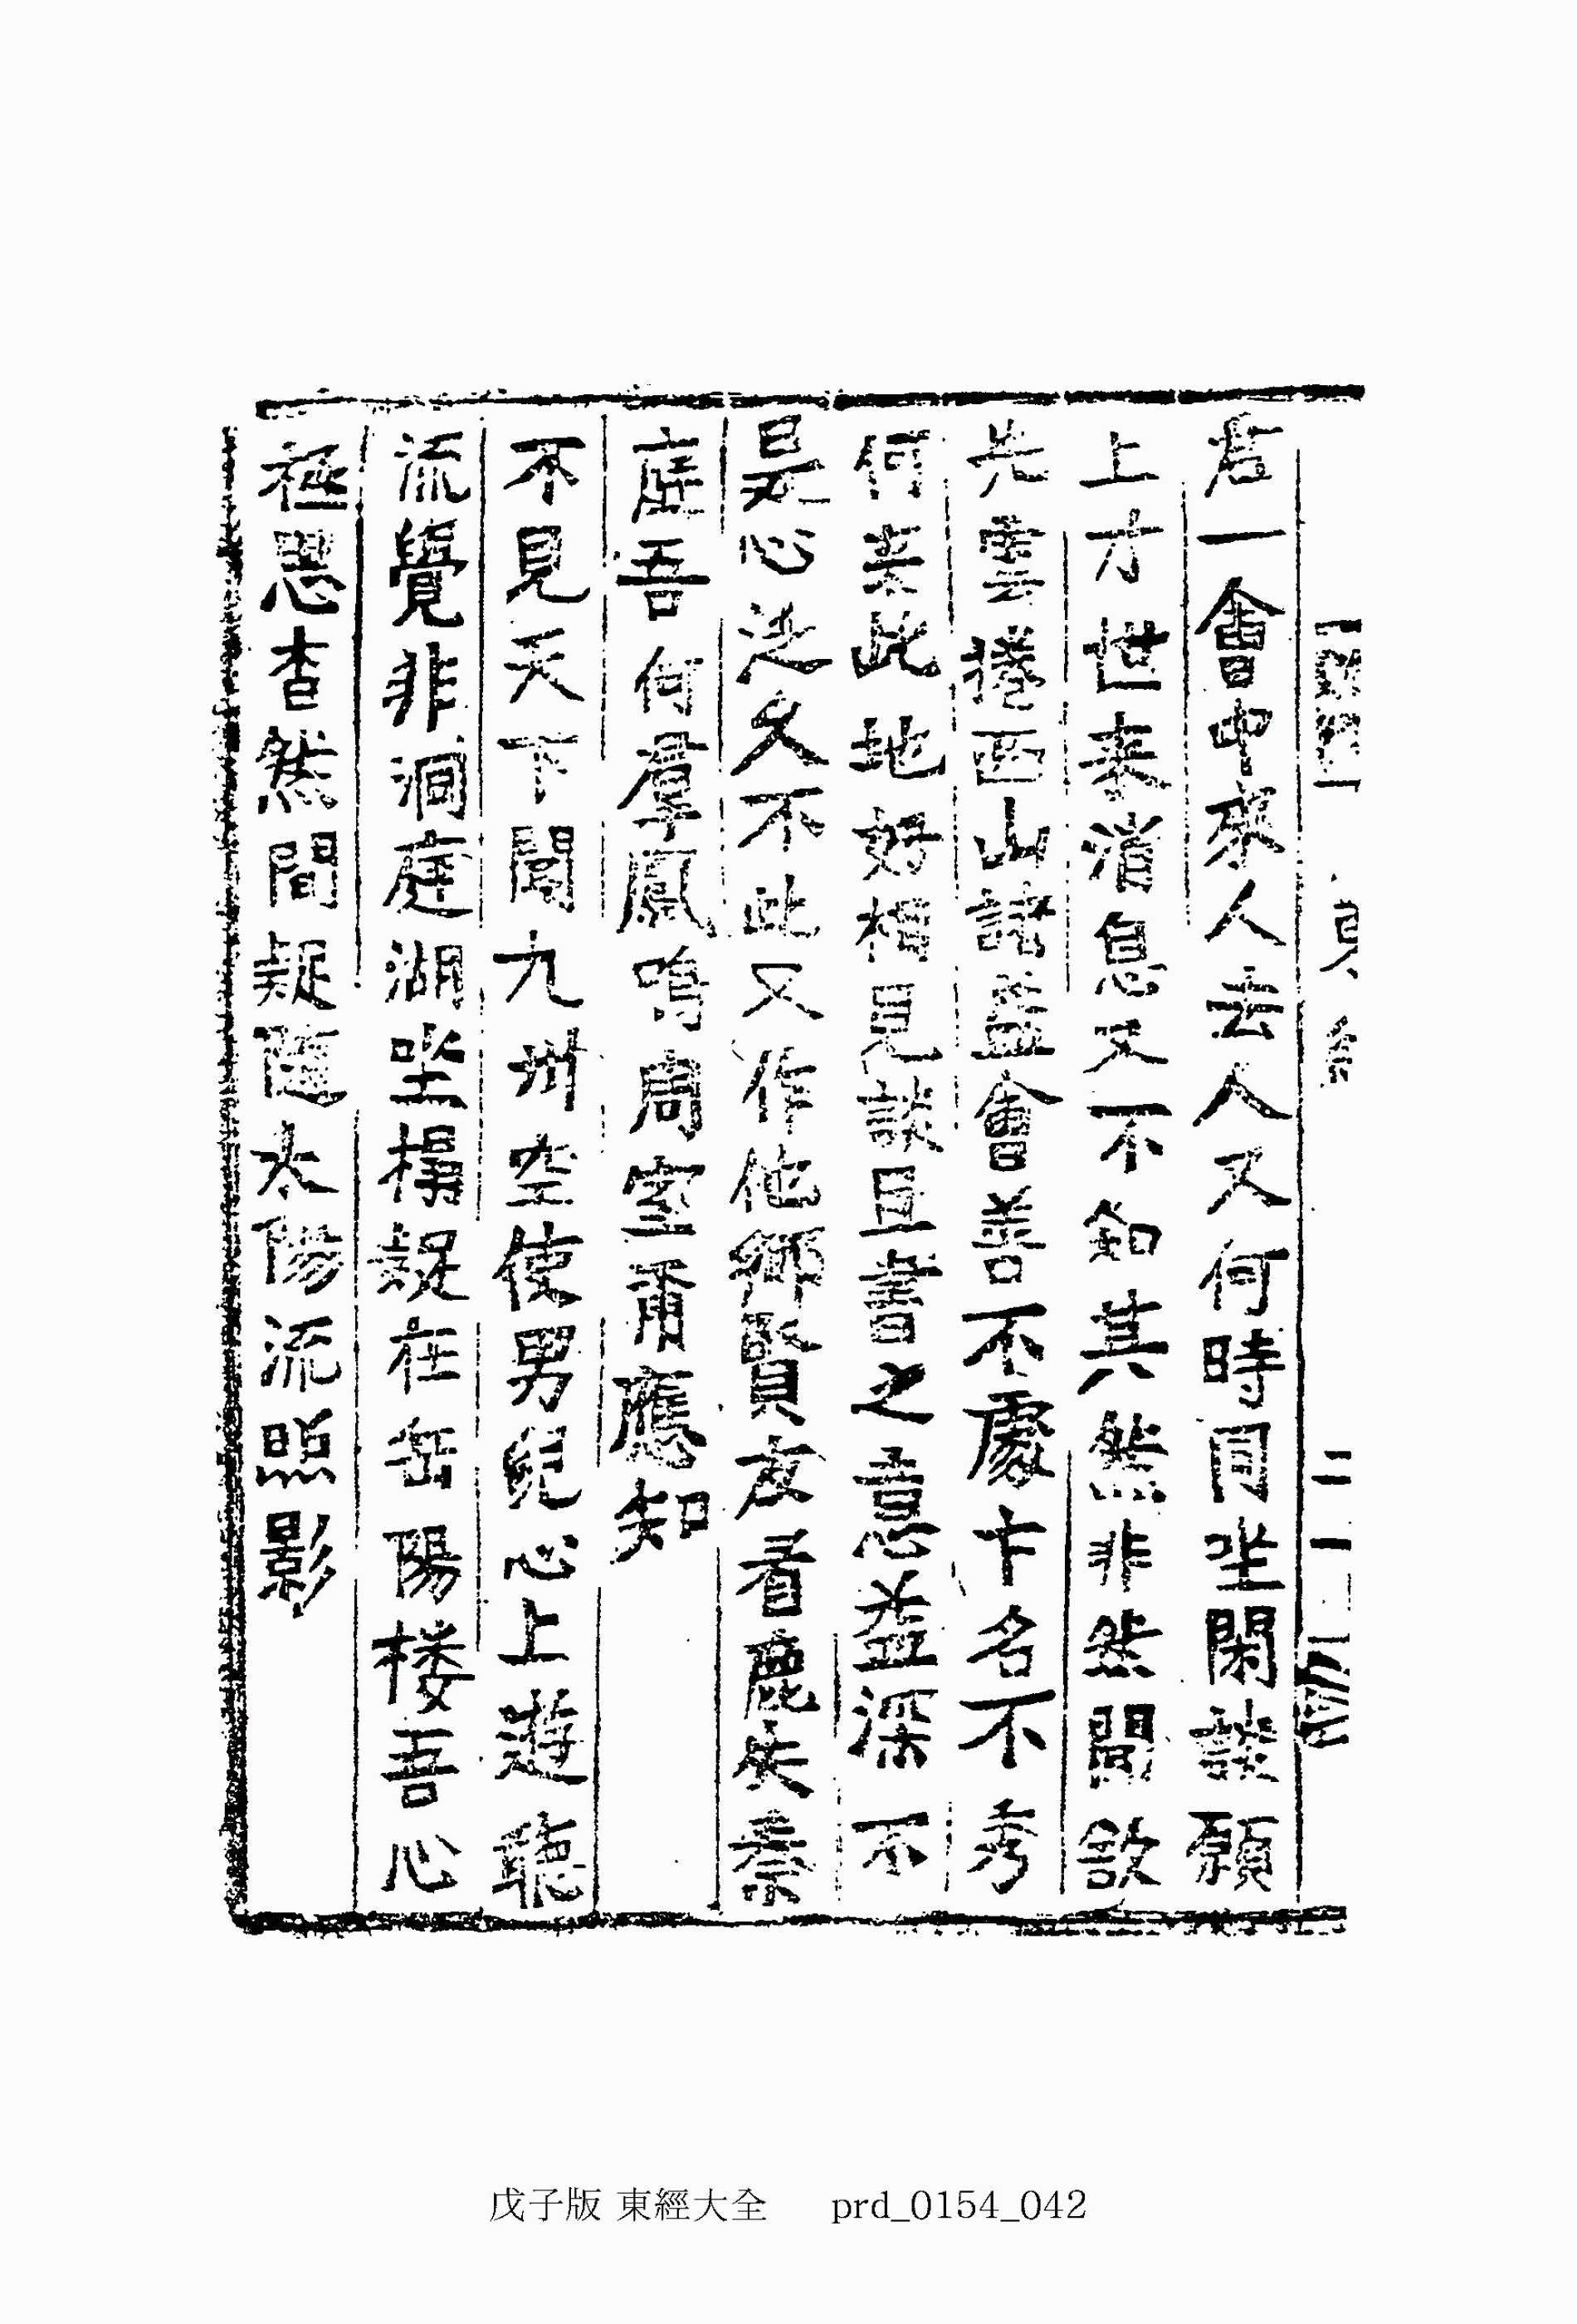 二一
君一會中來人去人又何時同坐閑談願
上才世来消息又不知其然非然聞欲
先雲捲西山諸益會善不處卞名不秀
何来此地好相見談且書之意益深不
是心泛久不此又作他鄕賢友看鹿失秦
庭吾何羣鳳鳴周室爾應知
不見天下聞九州空使男兒心上遊聽
流覺非洞庭湖坐榻疑在岳陽楼吾心
極思杳然間疑隨太陽流照影
戊子版 東經大全 prd_0154_042